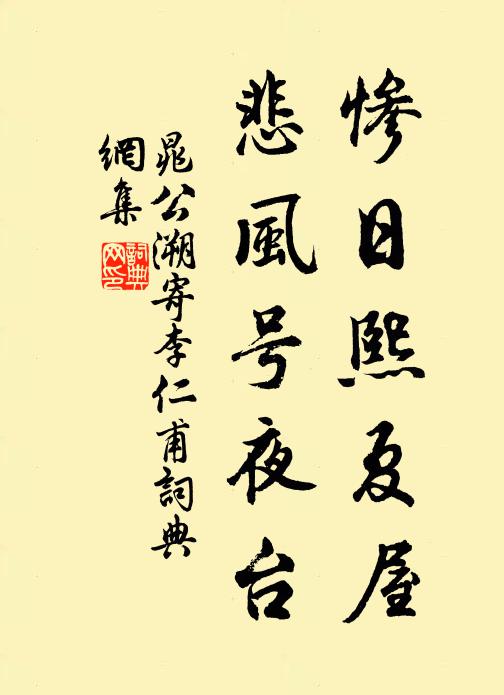 惨日熙夏屋
悲風号夜台
晁公溯寄李仁甫詞典
網集
詞典
网印